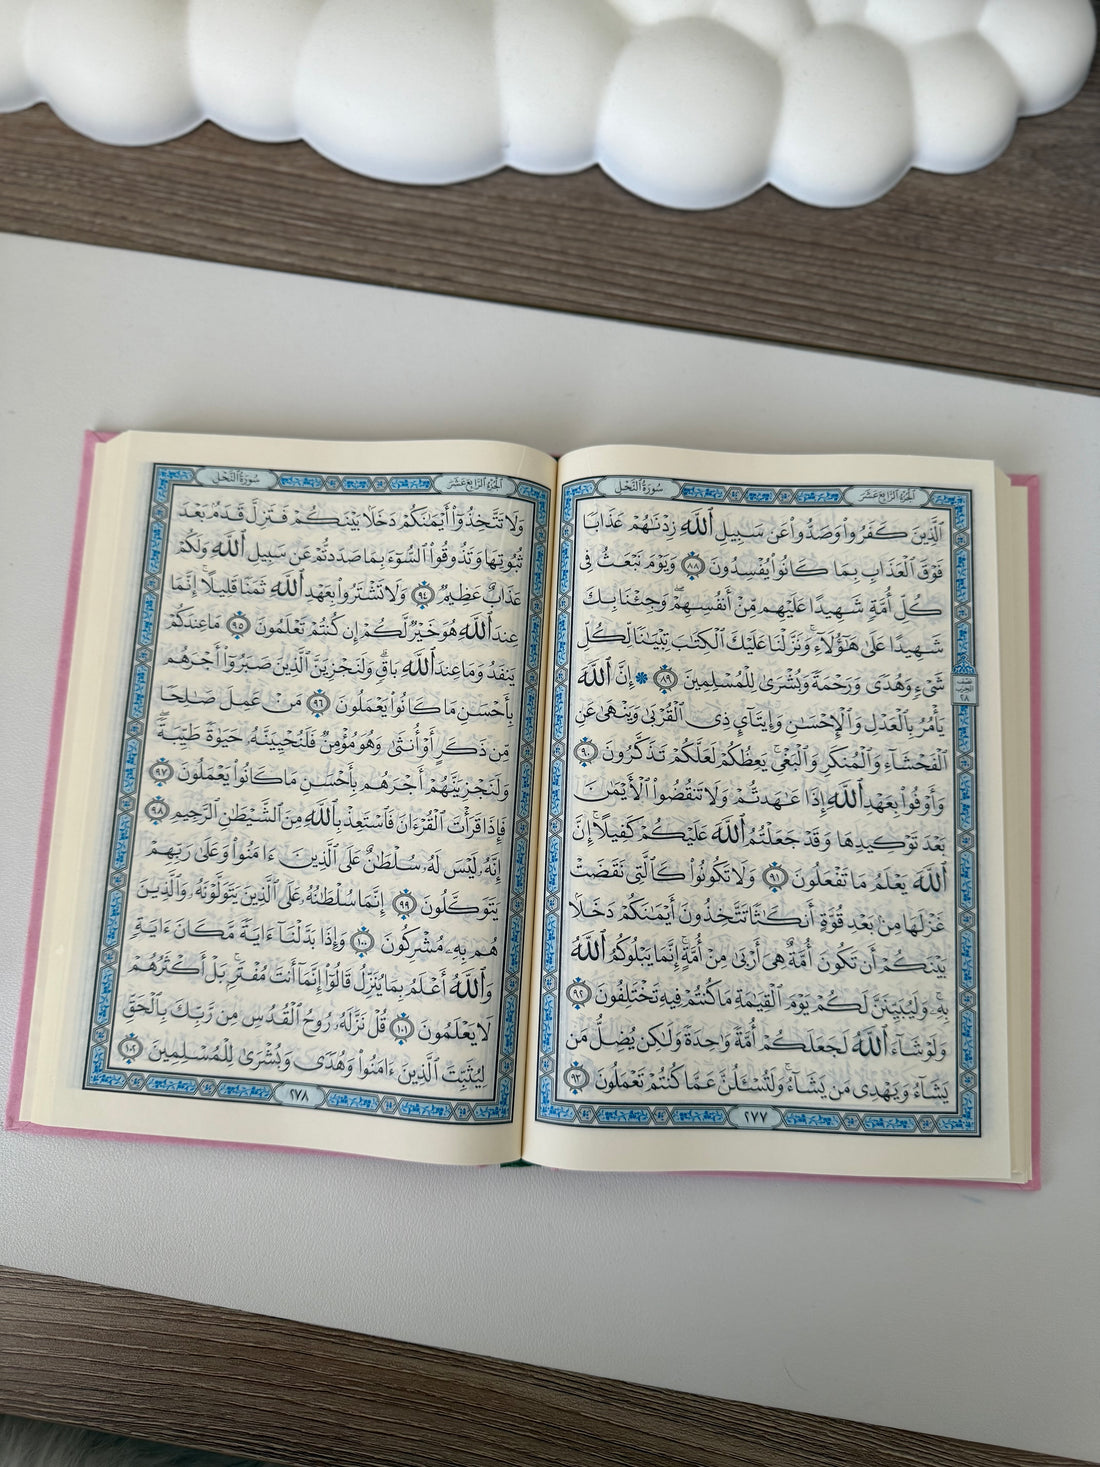 الجزء الرابع عشر
سورة النحل
ٱلَّذِينَ كَفَرُوا۟ وَصَدُّوا۟ عَن سَبِيلِ ٱللَّهِ زِدْنَٰهُمْ عَذَابًا
فَوْقَ ٱلْعَذَابِ بِمَا كَانُوا۟ يُفْسِدُونَ ٨٨ وَيَوْمَ نَبْعَثُ فِى
كُلِّ أُمَّةٍ شَهِيدًا عَلَيْهِم مِّنْ أَنفُسِهِمْ ۖ وَجِئْنَا بِكَ
شَهِيدًا عَلَىٰ هَٰٓؤُلَآءِ ۚ وَنَزَّلْنَا عَلَيْكَ ٱلْكِتَٰبَ تِبْيَٰنًا لِّكُلِّ
شَىْءٍ وَهُدًى وَرَحْمَةً وَبُشْرَىٰ لِلْمُسْلِمِينَ ٨٩ ۞ إِنَّ ٱللَّهَ
يَأْمُرُ بِٱلْعَدْلِ وَٱلْإِحْسَٰنِ وَإِيتَآئِ ذِى ٱلْقُرْبَىٰ وَيَنْهَىٰ عَنِ
ٱلْفَحْشَآءِ وَٱلْمُنكَرِ وَٱلْبَغْىِ ۚ يَعِظُكُمْ لَعَلَّكُمْ تَذَكَّرُونَ ٩٠
وَأَوْفُوا۟ بِعَهْدِ ٱللَّهِ إِذَا عَٰهَدتُّمْ وَلَا تَنقُضُوا۟ ٱلْأَيْمَٰنَ
بَعْدَ تَوْكِيدِهَا وَقَدْ جَعَلْتُمُ ٱللَّهَ عَلَيْكُمْ كَفِيلًا ۚ إِنَّ
ٱللَّهَ يَعْلَمُ مَا تَفْعَلُونَ ٩١ وَلَا تَكُونُوا۟ كَٱلَّتِى نَقَضَتْ
غَزْلَهَا مِنۢ بَعْدِ قُوَّةٍ أَنكَٰثًا تَتَّخِذُونَ أَيْمَٰنَكُمْ دَخَلًۢا
بَيْنَكُمْ أَن تَكُونَ أُمَّةٌ هِىَ أَرْبَىٰ مِنْ أُمَّةٍ ۚ إِنَّمَا يَبْلُوكُمُ ٱللَّهُ
بِهِۦ ۚ وَلَيُبَيِّنَنَّ لَكُمْ يَوْمَ ٱلْقِيَٰمَةِ مَا كُنتُمْ فِيهِ تَخْتَلِفُونَ ٩٢
وَلَوْ شَآءَ ٱللَّهُ لَجَعَلَكُمْ أُمَّةً وَٰحِدَةً وَلَٰكِن يُضِلُّ مَن
يَشَآءُ وَيَهْدِى مَن يَشَآءُ ۚ وَلَتُسْـَٔلُنَّ عَمَّا كُنتُمْ تَعْمَلُونَ ٩٣
الحزب
٢٨
٢٧٧
الجزء الرابع عشر
سورة النحل
وَلَا تَتَّخِذُوٓا۟ أَيْمَٰنَكُمْ دَخَلًۢا بَيْنَكُمْ فَتَزِلَّ قَدَمٌۢ بَعْدَ
ثُبُوتِهَا وَتَذُوقُوا۟ ٱلسُّوٓءَ بِمَا صَدَدتُّمْ عَن سَبِيلِ ٱللَّهِ ۖ وَلَكُمْ
عَذَابٌ عَظِيمٌ ٩٤ وَلَا تَشْتَرُوا۟ بِعَهْدِ ٱللَّهِ ثَمَنًا قَلِيلًا ۚ إِنَّمَا
عِندَ ٱللَّهِ هُوَ خَيْرٌ لَّكُمْ إِن كُنتُمْ تَعْلَمُونَ ٩٥ مَا عِندَكُمْ
يَنفَدُ ۖ وَمَا عِندَ ٱللَّهِ بَاقٍ ۗ وَلَنَجْزِيَنَّ ٱلَّذِينَ صَبَرُوٓا۟ أَجْرَهُم
بِأَحْسَنِ مَا كَانُوا۟ يَعْمَلُونَ ٩٦ مَنْ عَمِلَ صَٰلِحًا
مِّن ذَكَرٍ أَوْ أُنثَىٰ وَهُوَ مُؤْمِنٌ فَلَنُحْيِيَنَّهُۥ حَيَوٰةً طَيِّبَةً ۖ
وَلَنَجْزِيَنَّهُمْ أَجْرَهُم بِأَحْسَنِ مَا كَانُوا۟ يَعْمَلُونَ ٩٧
فَإِذَا قَرَأْتَ ٱلْقُرْءَانَ فَٱسْتَعِذْ بِٱللَّهِ مِنَ ٱلشَّيْطَٰنِ ٱلرَّجِيمِ ٩٨
إِنَّهُۥ لَيْسَ لَهُۥ سُلْطَٰنٌ عَلَى ٱلَّذِينَ ءَامَنُوا۟ وَعَلَىٰ رَبِّهِمْ
يَتَوَكَّلُونَ ٩٩ إِنَّمَا سُلْطَٰنُهُۥ عَلَى ٱلَّذِينَ يَتَوَلَّوْنَهُۥ وَٱلَّذِينَ
هُم بِهِۦ مُشْرِكُونَ ١٠٠ وَإِذَا بَدَّلْنَآ ءَايَةً مَّكَانَ ءَايَةٍ ۙ
وَٱللَّهُ أَعْلَمُ بِمَا يُنَزِّلُ قَالُوٓا۟ إِنَّمَآ أَنتَ مُفْتَرٍۭ ۚ بَلْ أَكْثَرُهُمْ
لَا يَعْلَمُونَ ١٠١ قُلْ نَزَّلَهُۥ رُوحُ ٱلْقُدُسِ مِن رَّبِّكَ بِٱلْحَقِّ
لِيُثَبِّتَ ٱلَّذِينَ ءَامَنُوا۟ وَهُدًى وَبُشْرَىٰ لِلْمُسْلِمِينَ ١٠٢
٢٧٨